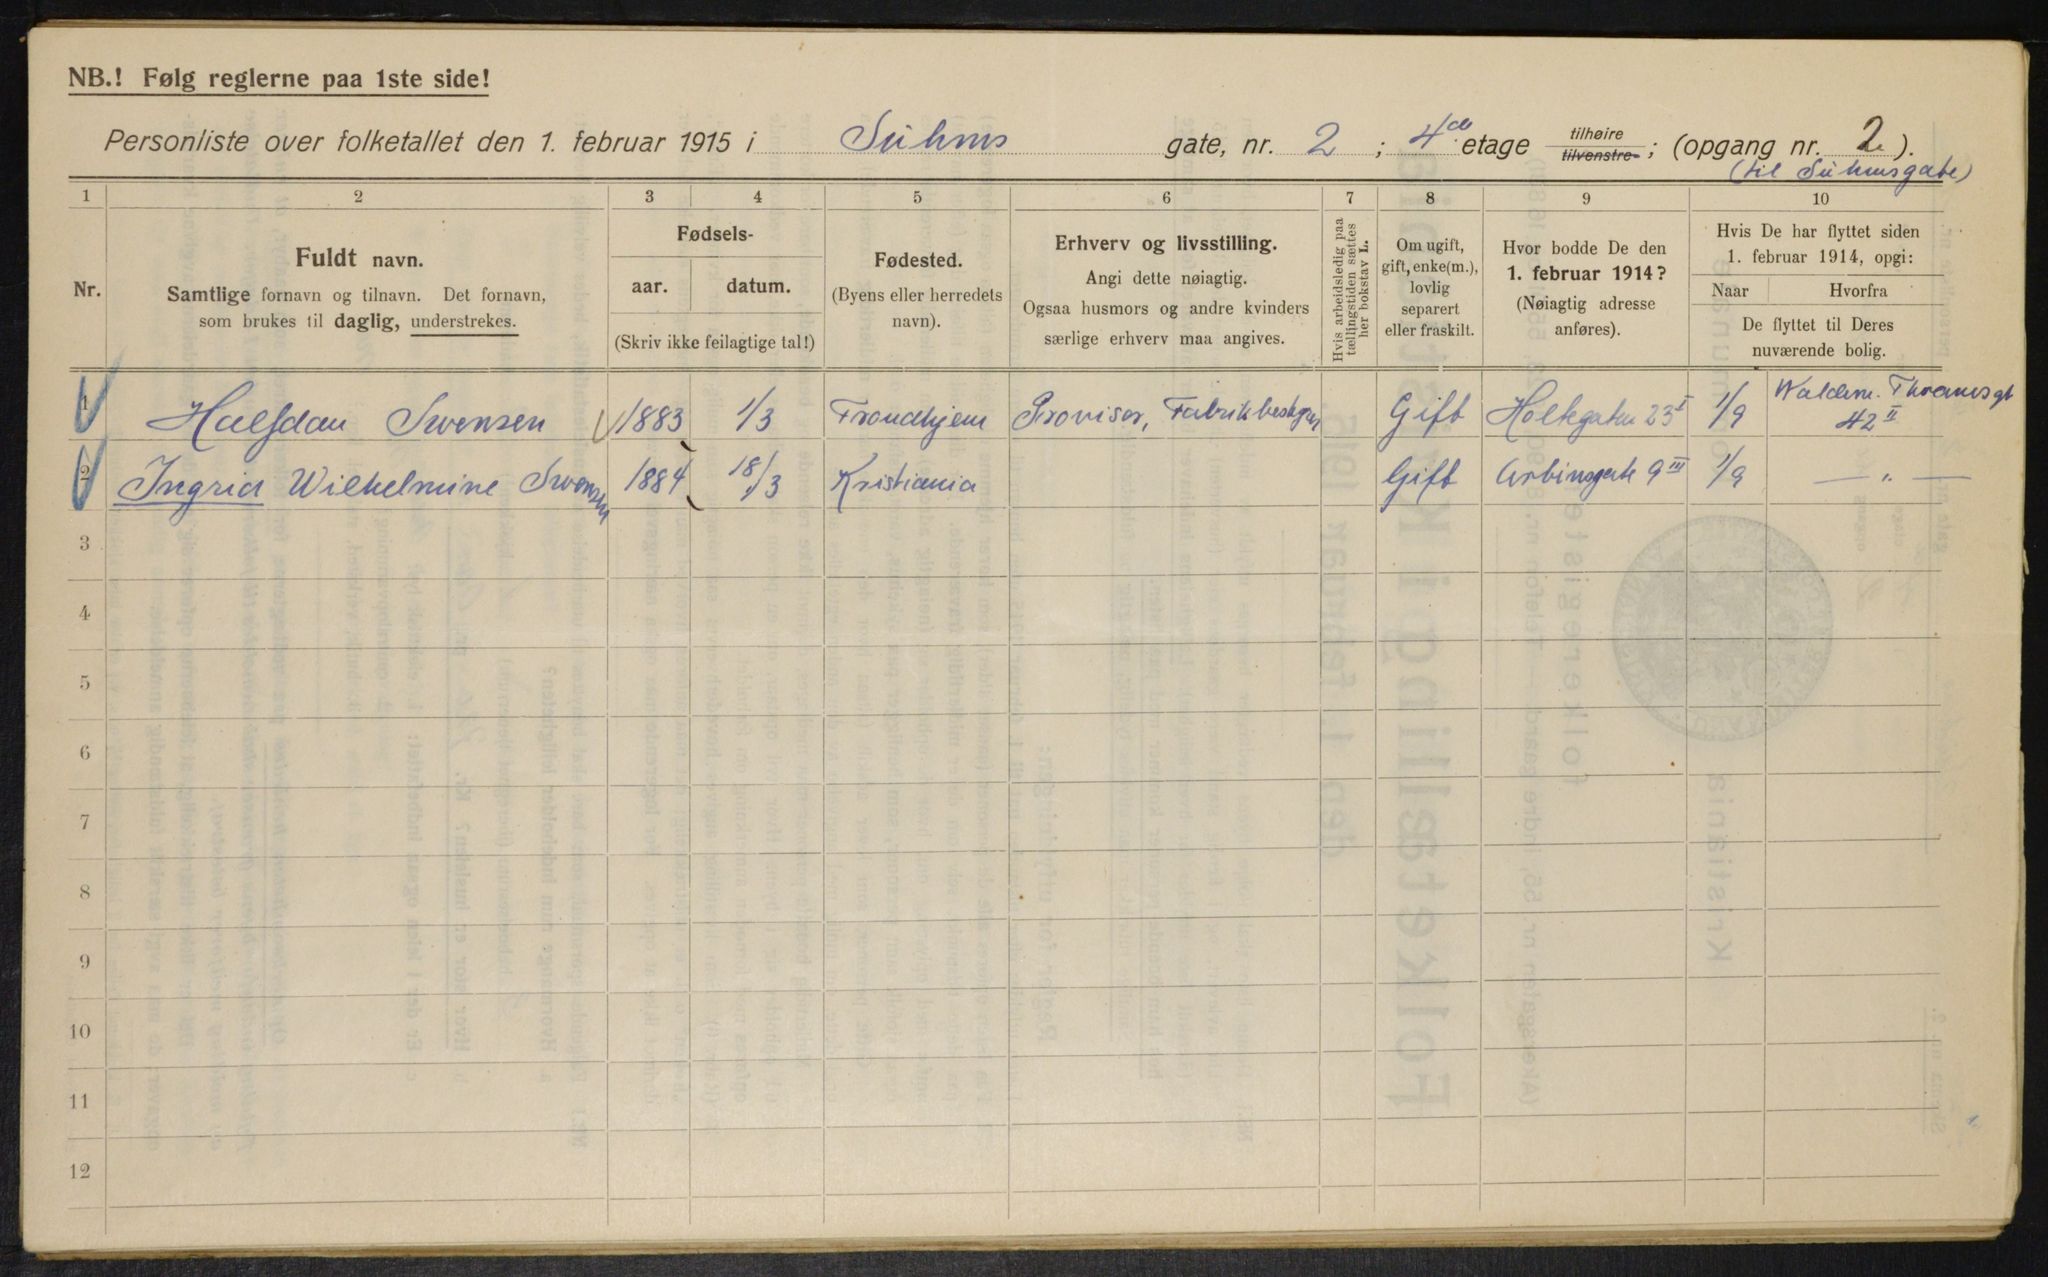 NB.! Følg reglerne paa 1ste side!
Personliste over folketallet den 1. februar 1915 i Suhms gate, nr. 2 ; 4de etage tilhøire tilvenstre ; (opgang nr. 2).
(til Suhmsgate)
1 2 3 4 5 6 7 8 9 10
Nr.
Fuldt navn.
Samtlige fornavn og tilnavn. Det fornavn,
som brukes til daglig, understrekes.
Fødsels-
aar. datum.
(Skriv ikke feilagtige tal!)
Fødested.
(Byens eller herredets
navn).
Erhverv og livsstilling.
Angi dette nøiagtig.
Ogsaa husmors og andre kvinders
særlige erhverv maa angives.
Hvis arbeidsledig paa
tællingstiden sættes
her bokstav L.
Om ugift,
gift, enke(m.),
lovlig
separert
eller fraskilt.
Hvor bodde De den
1. februar 1914?
(Nøiagtig adresse
anføres).
Hvis De har flyttet siden
1. februar 1914, opgi:
Naar Hvorfra
De flyttet til Deres
nuværende bolig.
1 Halfdan Svensen 1883 1/3 Trondhjem Provisor, Gift Holtegaten 23 I 1/9 Waldem. Thranesgt
42 II
2 Ingrid Wilhelmine Svensen 1884 18/3 Kristiania Gift Arbinsgate 9 III 1/9 — „ —
3
4
5
6
7
8
9
10
11
12